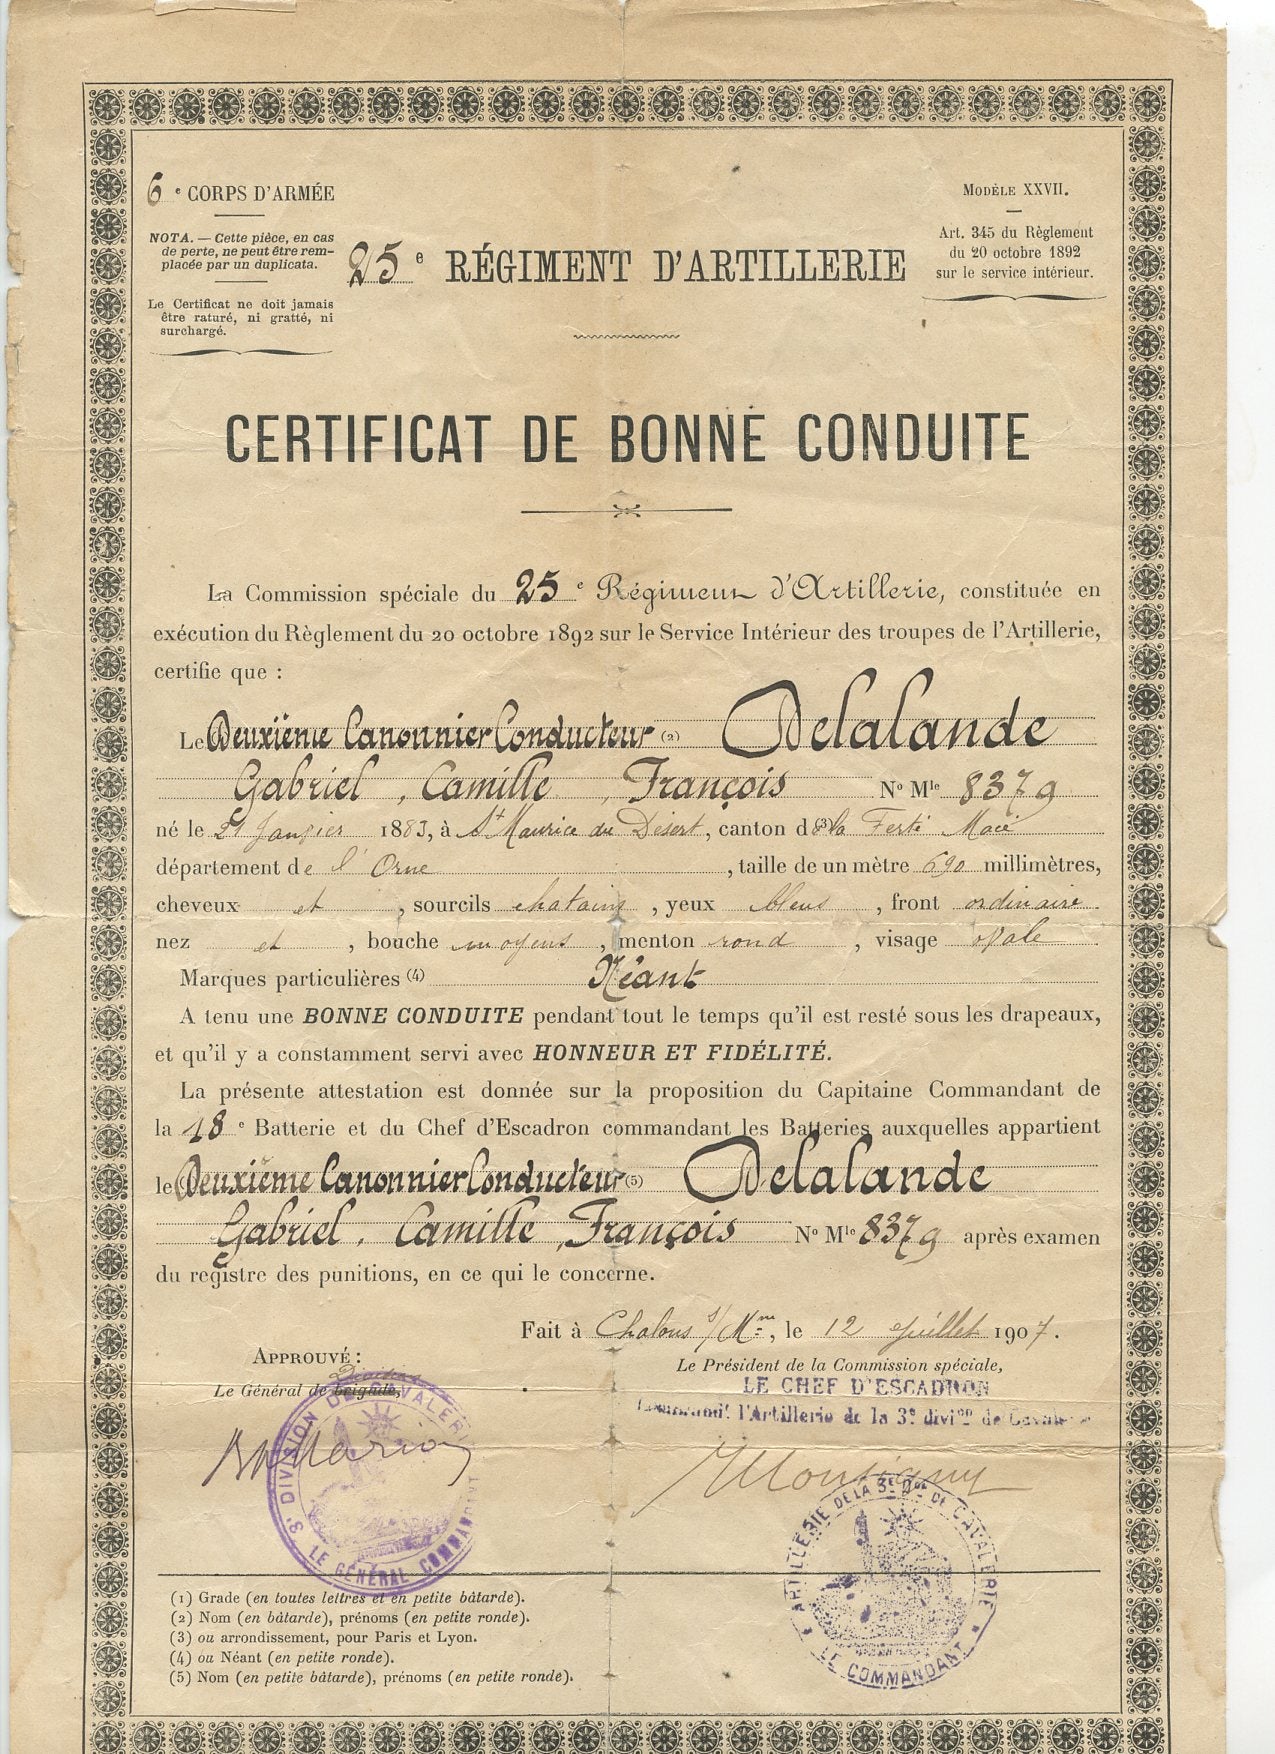 6e CORPS D'ARMÉE
NOTA. — Cette pièce, en cas
de perte, ne peut être rem-
placée par un duplicata.
Le Certificat ne doit jamais
être raturé, ni gratté, ni
surchargé.
MODÈLE XXVII.
Art. 345 du Règlement
du 20 octobre 1892
sur le service intérieur.
25e RÉGIMENT D'ARTILLERIE
CERTIFICAT DE BONNE CONDUITE
La Commission spéciale du 25e Régiment d'Artillerie, constituée en
exécution du Règlement du 20 octobre 1892 sur le Service Intérieur des troupes de l'Artillerie,
certifie que :
Le Deuxième Canonnier Conducteur (2) Delalande
Gabriel, Camille, François No Mle 8379
né le 21 Janvier 1883, à St Maurice du Désert, canton de (3) la Ferté Macé
département de l'Orne, taille de un mètre 690 millimètres,
cheveux et, sourcils chatains, yeux bleus, front ordinaire
nez et, bouche moyens, menton rond, visage ovale
Marques particulières (4) Néant
A tenu une BONNE CONDUITE pendant tout le temps qu'il est resté sous les drapeaux,
et qu'il y a constamment servi avec HONNEUR ET FIDÉLITÉ.
La présente attestation est donnée sur la proposition du Capitaine Commandant de
la 18e Batterie et du Chef d'Escadron commandant les Batteries auxquelles appartient
le Deuxième Canonnier Conducteur (5) Delalande
Gabriel, Camille, François No Mle 8379 après examen
du registre des punitions, en ce qui le concerne.
Fait à Chalons s/ Mne, le 12 Juillet 1907.
APPROUVÉ :
Le Général de brigade,
Division
3e DIVISION DE CAVALERIE
LE GÉNÉRAL COMMANDANT
Le Président de la Commission spéciale,
LE CHEF D'ESCADRON
Commandt l'Artillerie de la 3e divion de Cavalerie
Montigny
ARTILLERIE DE LA 3e Don DE CAVALERIE
LE COMMANDANT
(1) Grade (en toutes lettres et en petite bâtarde).
(2) Nom (en bâtarde), prénoms (en petite ronde).
(3) ou arrondissement, pour Paris et Lyon.
(4) ou Néant (en petite ronde).
(5) Nom (en petite bâtarde), prénoms (en petite ronde).